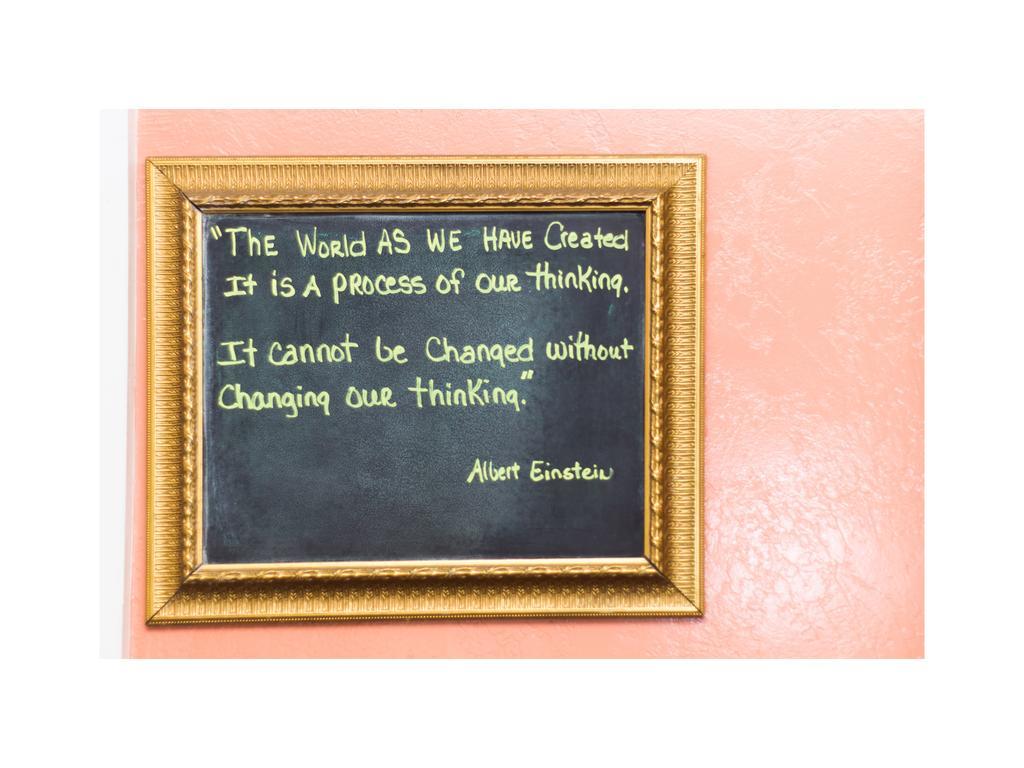 "The World AS WE HAVE Created
It is A PROCESS of our thinking.
It cannot be Changed without
Changing our thinking."
Albert Einstein